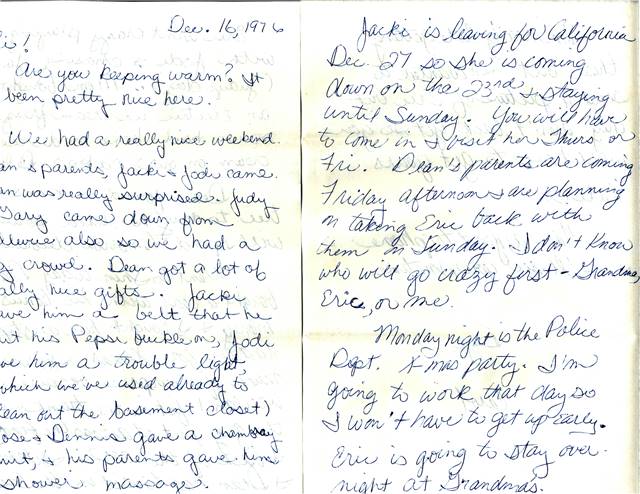 Dec. 16, 1976
i!
Are you keeping warm? It
been pretty nice here.
We had a really nice weekend.
an's parents, Jacki & Jodi came.
an was really surprised. Judy
Gary came down from
also so we had a
g crowd. Dean got a lot of
ally nice gifts. Jacki
ave him a belt that he
ut his Pepsi buckle on, Jodi
ve him a trouble light,
which we've used already to
lean out the basement closet)
ose & Dennis gave a chambray
& his parents gave him
shower massage.
Jacki is leaving for California
Dec. 27 so she is coming
down on the 23rd & staying
until Sunday. You will have
to come in & visit her Thurs or
Fri. Dean's parents are coming
Friday afternoon & are planning
on taking Eric back with
them on Sunday. I don't know
who will go crazy first - Grandma,
Eric, or me.
Monday night is the Police
Dept. X-mas party. I'm
going to work that day so
I won't have to get up early.
Eric is going to stay over
night at Grandma's.